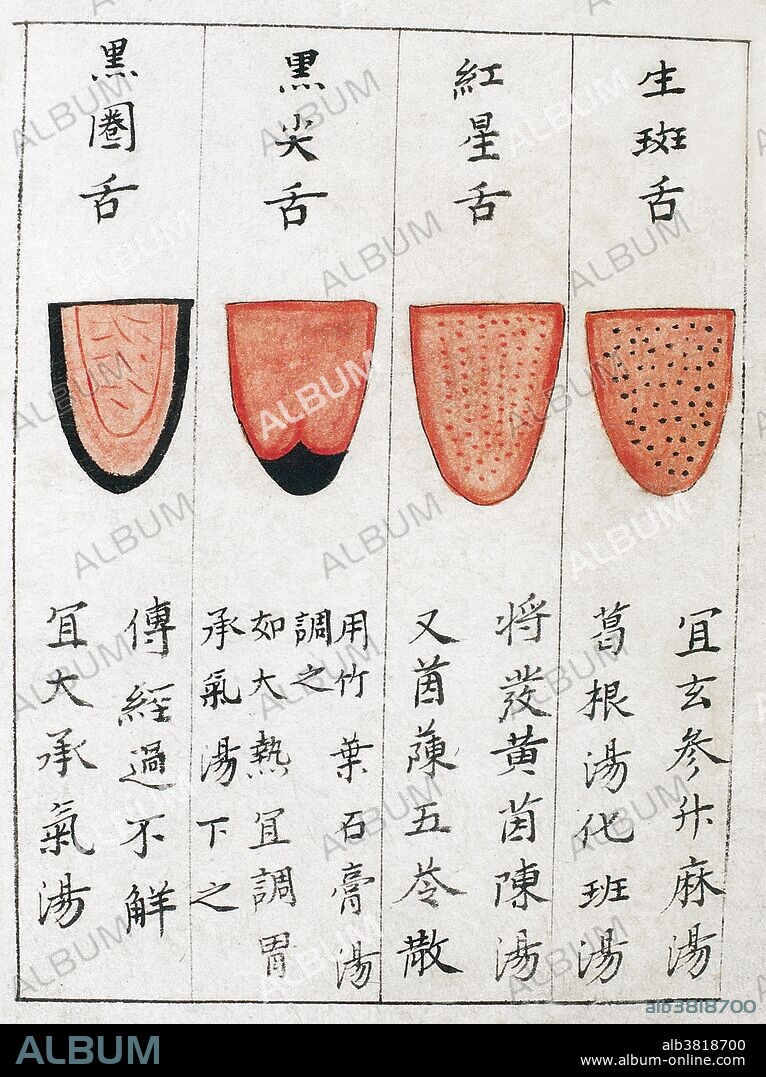 生斑舌
宜玄參升麻湯
葛根湯化班湯
紅星舌
将發黃茵陳湯
又茵蔯五苓散
黒尖舌
用竹葉石膏湯
調之
如大熱宜調胃
承氣湯下之
黒圈舌
傳經過不解
宜大承氣湯
ALBUM
alb3818700
ALBUM
alb3818700
www.album-online.com